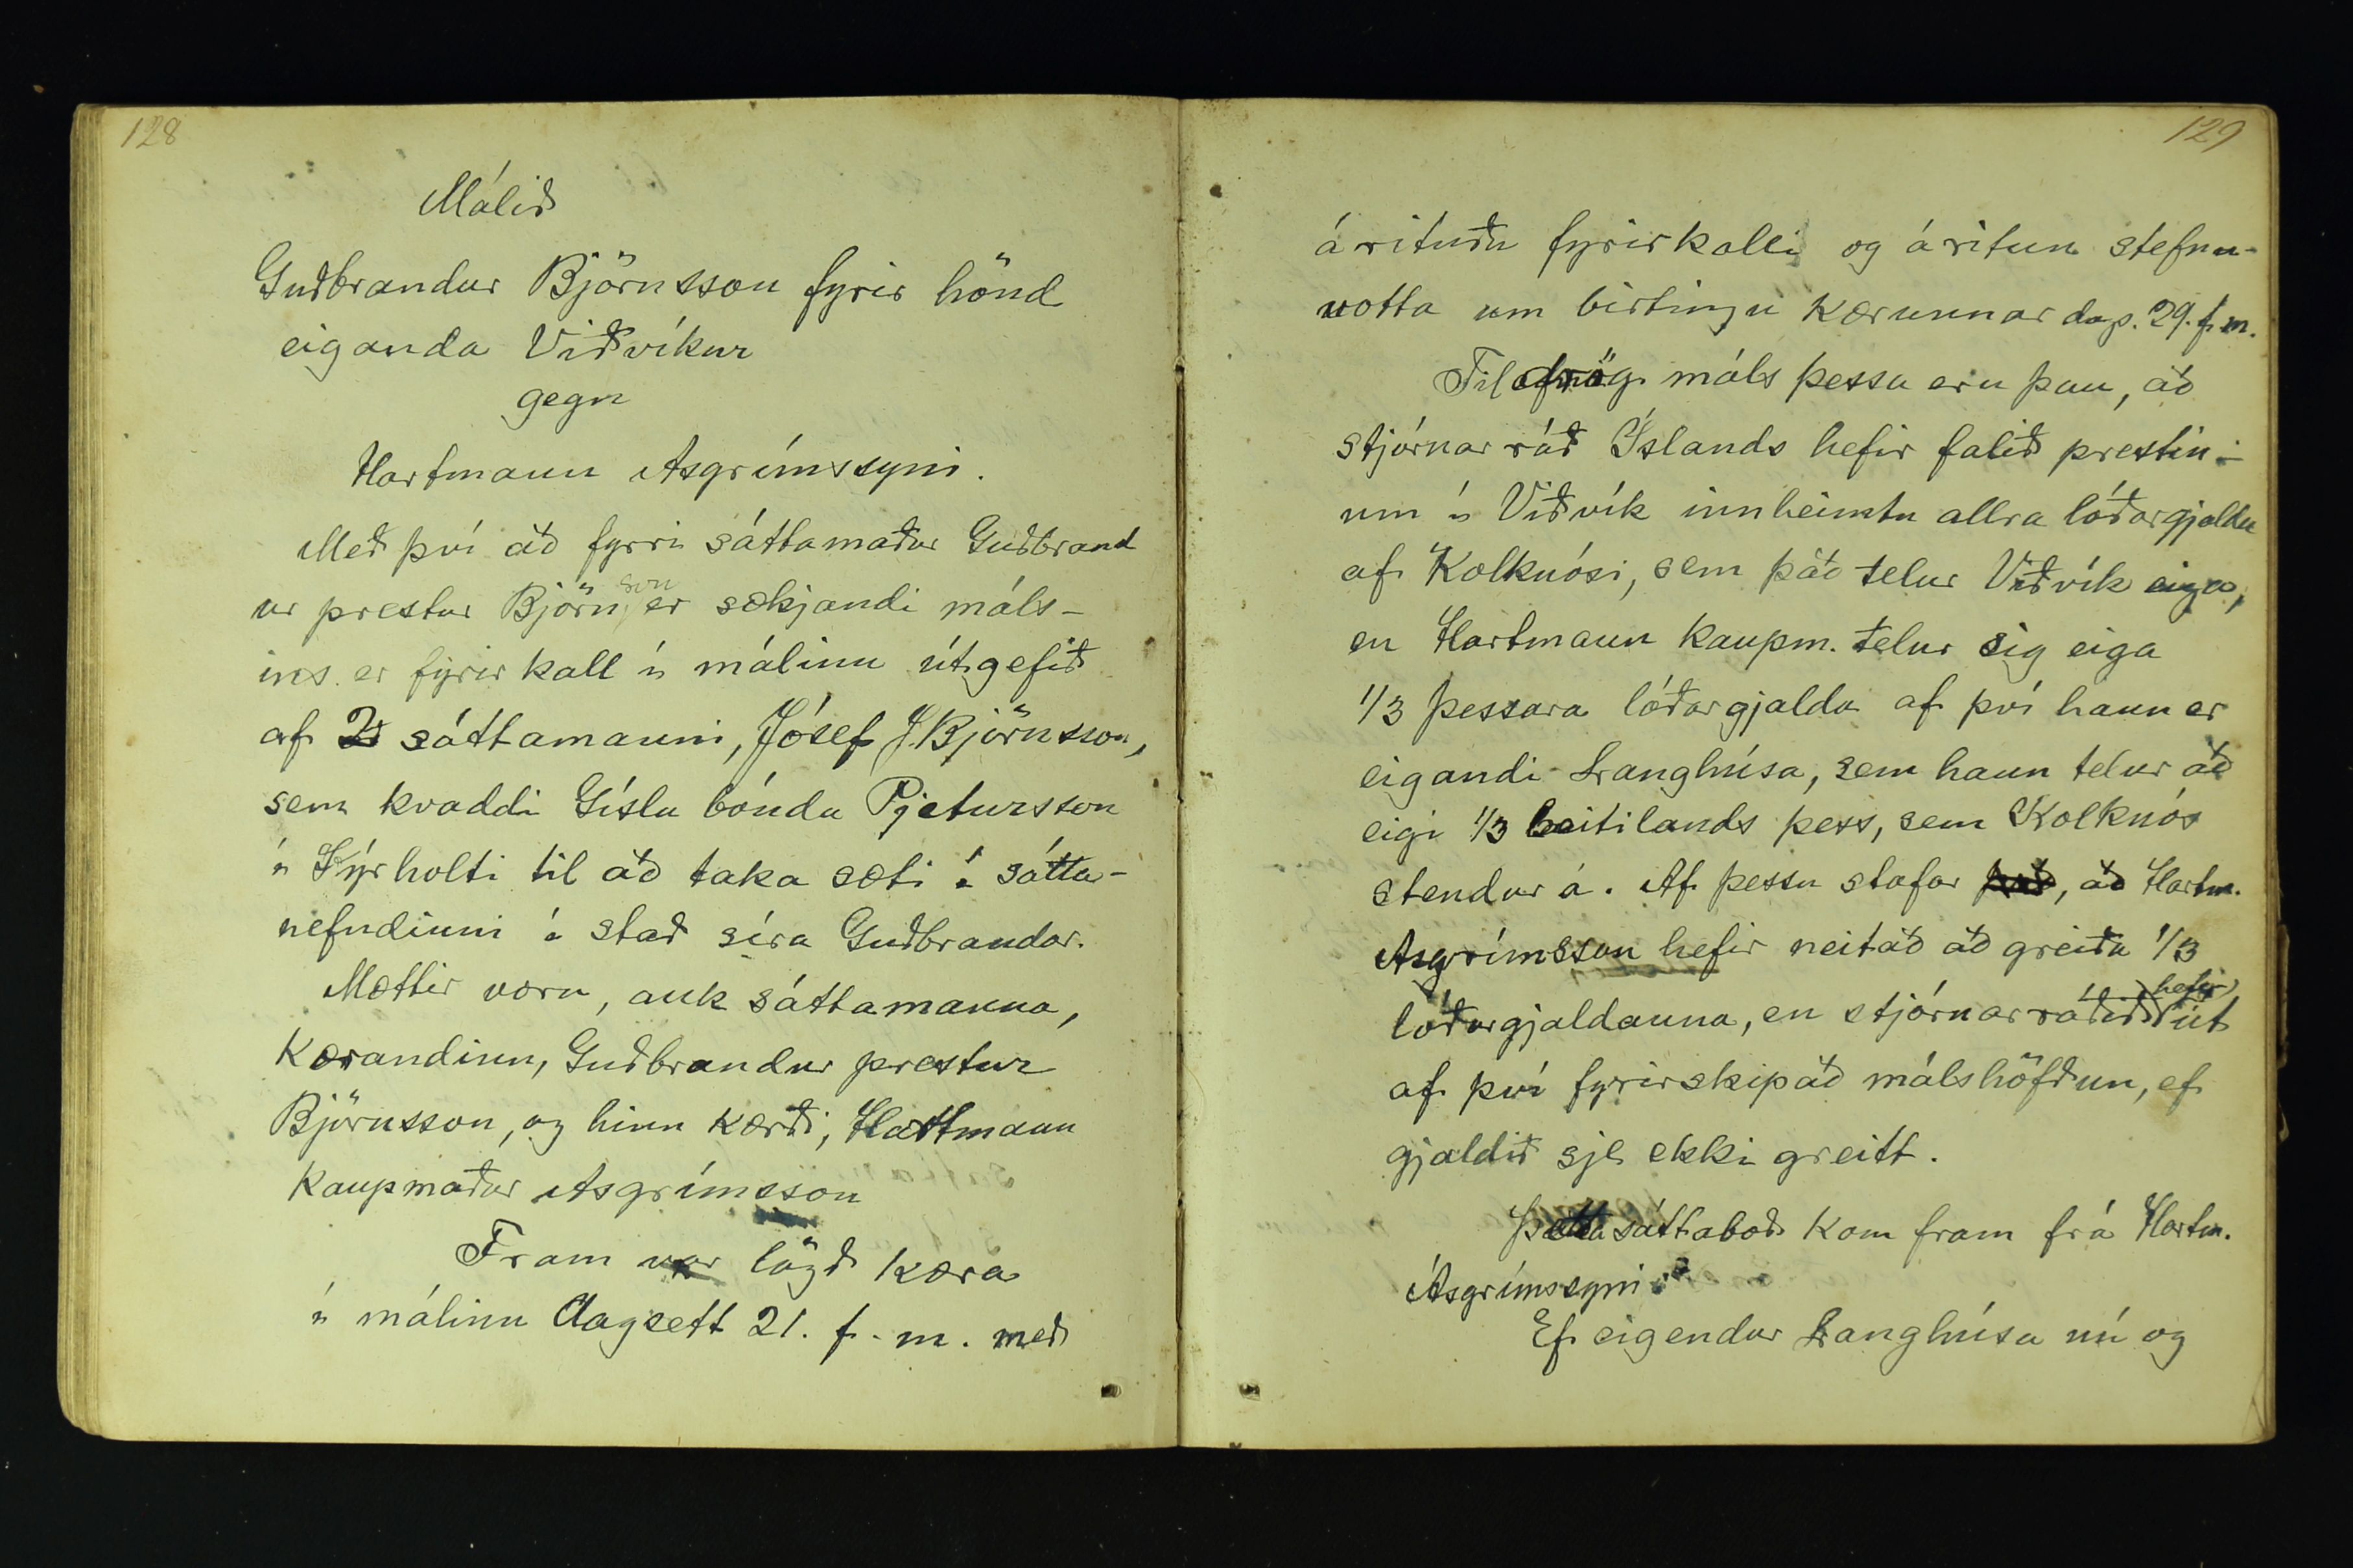 128
Málið
Guðbrandur Björnsson fyrir hönd
eiganda Viðvíkur
gegn
Hartmann Asgrímssyni.
Með því að fyrri sáttamaður Guðbrand
ur prestur Björnsson er sækjandi máls-
ins er fyrirkall í málinu útgefið
af 2. sáttamanni, Jósef J. Björnsson,
sem kvaddi Gísla bónda Pjetursson
í Kýrholti til að taka sæti í sátta-
nefndinni í stað síra Guðbrandar.
Mættir voru, auk sáttamanna,
Kærandinn, Guðbrandur prestur
Björnsson, og hinn kærði, Hartmann
Kaupmaður Asgrímsson
Fram var lögð kæra
í málinu dagsett 21. f. m. með
129
árituðu fyrirkalli og áritun stefnu-
votta um birtingu kærunnar dags. 29. f. m.
Tildrög máls þessa eru þau, að
stjórnarráð Íslands hefir falið prestin-
um í Viðvík innheimtu allra lóðargjalda
af Kolkuósi, sem það telur Viðvík eiga,
en Hartmann kaupm. telur sig eiga
1/3 þessara lóðargjalda af því hann er
eigandi Langhúsa, sem hann telur að
eigi 1/3 beitilands þess, sem Kolkuós
stendur á. Af þessu stafar það, að Hartm.
Asgrímsson hefir neitað að greiða 1/3
lóðargjaldanna, en stjórnarráðið hefir út
af því fyrirskipað málshöfðun, ef
gjaldið sje ekki greitt.
Þetta sáttaboð kom fram frá Hartm.
Ásgrímssyni:
Ef eigendur Langhúsa nú og